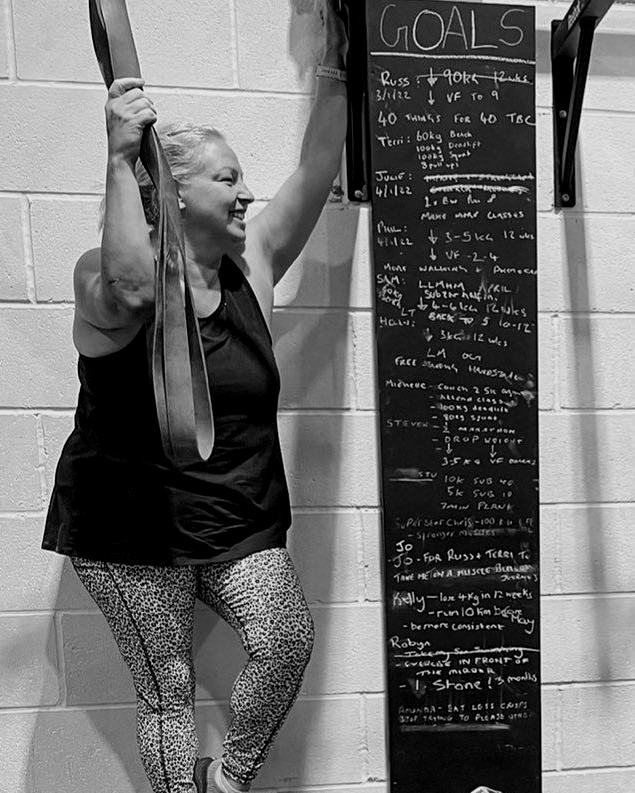 GOALS
Russ: ↓ 90kg 12 wks
3/1/22 ↓ VF TO 9
40 THINGS FOR 40 TBC
Terri: 60kg Bench
100kg Deadlift
100kg Squat
3 pull ups
JULIE:
4/1/22
MAKE MORE CLASSES
PHIL:
↓ 3-5kg 12 wks
↓ VF -2-4
MORE WALKING
SAM: LLMHM APRIL
↓ 4-6kg 12wks
LT BACK TO 5 10-12
↓ 3kg 12 wks
LM
FREE STANDING HANDSTAND
Michelle - couch 2 5k
- Attend classes
- 100kg deadlift
- 80kg squat
STEVEN - 1/2 MARATHON
- DROP WEIGHT
↓ ↓
3-5kg VF
STU 10K SUB 40
5K SUB 18
7min PLANK
SuperStar Chris - 100 k
- stronger muscles
Jo
Jo - FOR RUSS + TERRI TO
TAKE ME ON A MUSCLE BUILDING
JOURNEY
Kelly - lose 4kg in 12 weeks
- run 10km before
May
- be more consistent
Robyn
- EXERCISE IN FRONT OF
THE MIRROR
- 1 Stone! 3 months
AMANDA - EAT LESS CRISPS
STOP TRYING TO PLEASE OTHERS